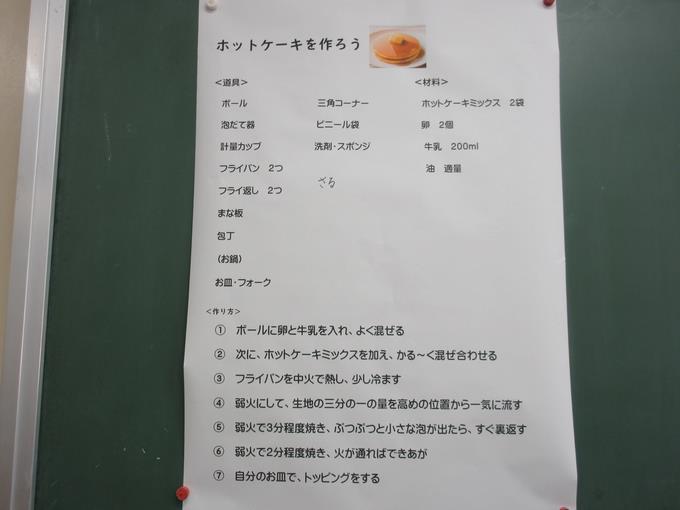 ホットケーキを作ろう
<道具>
ボール
泡だて器
計量カップ
フライパン 2つ
フライ返し 2つ
まな板
包丁
(お鍋)
お皿・フォーク
三角コーナー
ビニール袋
洗剤・スポンジ
ざる
<材料>
ホットケーキミックス 2袋
卵 2個
牛乳 200ml
油 適量
<作り方>
① ボールに卵と牛乳を入れ、よく混ぜる
② 次に、ホットケーキミックスを加え、かる~く混ぜ合わせる
③ フライパンを中火で熱し、少し冷ます
④ 弱火にして、生地の三分の一の量を高めの位置から一気に流す
⑤ 弱火で3分程度焼き、ぶつぶつと小さな泡が出たら、すぐ裏返す
⑥ 弱火で2分程度焼き、火が通ればできあが
⑦ 自分のお皿で、トッピングをする